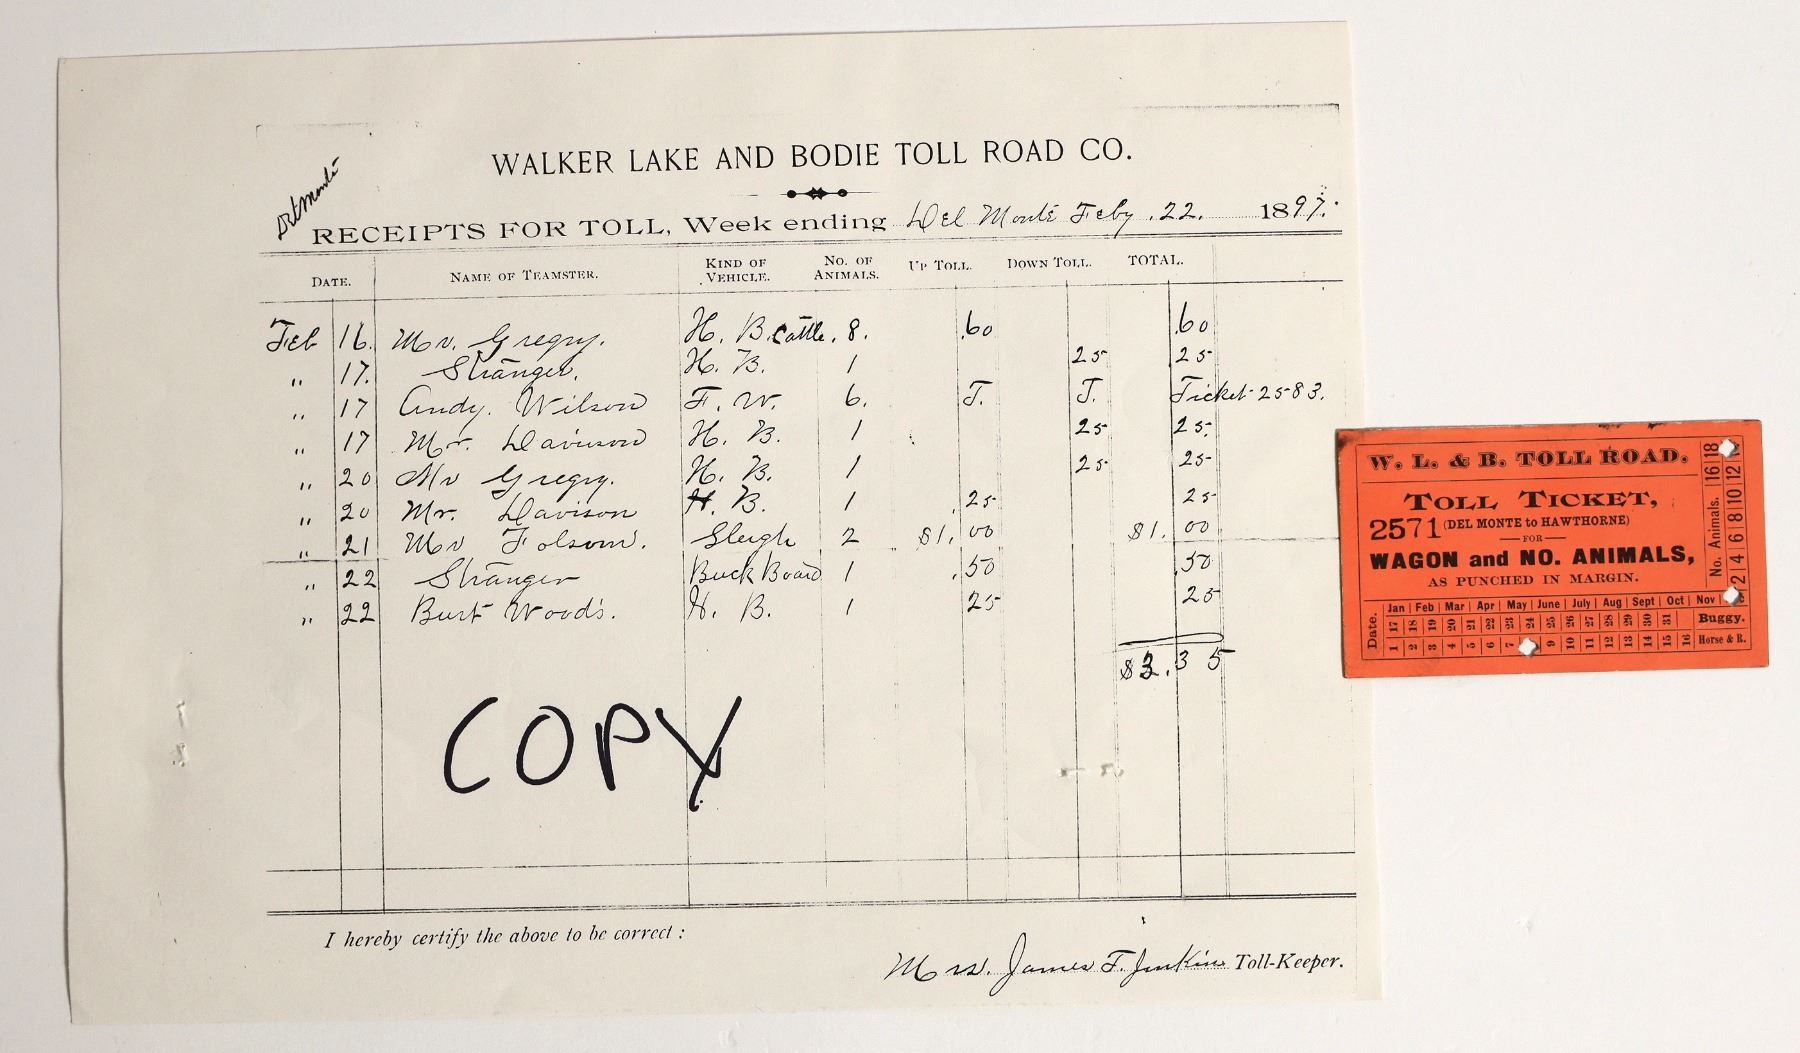 WALKER LAKE AND BODIE TOLL ROAD CO.
Del Monté
RECEIPTS FOR TOLL, Week ending Del Monté Feby. 22. 1897.
DATE. NAME OF TEAMSTER. KIND OF VEHICLE. NO. OF ANIMALS. UP TOLL. DOWN TOLL. TOTAL.
Feb 16. Mr. Gregry. H. B. Cattle. 8. .60 .60
" 17. Stranger. H. B. 1 25 25
" 17 Andy. Wilson F. W. 6. T. T. Ticket-2583.
" 17 Mr. Davison H. B. 1 25 25.
" 20 Mr Gregry. H. B. 1 25 25
" 20 Mr. Davison H. B. 1 .25 25
" 21 Mr Folsom. Sleigh 2 $1.00 $1.00
" 22 Stranger Buck Board 1 .50 .50
" 22 Burt Woods. H. B. 1 25 25
$3.35
COPY
I hereby certify the above to be correct:
Mrs. James F. Jenkins Toll-Keeper.
W. L. & B. TOLL ROAD.
TOLL TICKET,
2571 (DEL MONTE to HAWTHORNE)
—FOR—
WAGON and NO. ANIMALS,
AS PUNCHED IN MARGIN.
No. Animals. 16 18
2 4 6 8 10 12
Date. Jan Feb Mar Apr May June July Aug Sept Oct Nov
17 18 19 20 21 22 23 24 25 26 27 28 29 30 31 Buggy.
1 2 3 4 5 6 7 9 10 11 12 13 14 15 16 Horse & R.